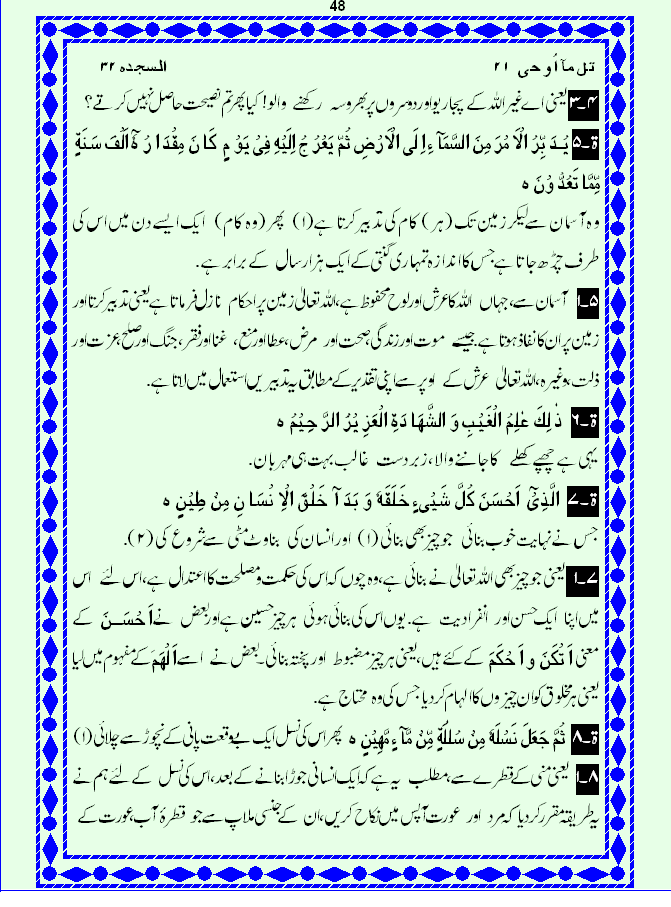 48
تل مآ أوحی ۲۱ السجدہ ۳۲
۳۔۴ یعنی اے غیر اللہ کے پجاریو اور دوسروں پر بھروسہ رکھنے والو! کیا پھر تم نصیحت حاصل نہیں کرتے؟
ۃ۔۵ یُدَبِّرُ الْاَمْرَ مِنَ السَّمَآءِ اِلَی الْاَرْضِ ثُمَّ یَعْرُجُ اِلَیْهِ فِیْ یَوْمٍ کَانَ مِقْدَارُهٗٓ اَلْفَ سَنَةٍ
مِّمَّا تَعُدُّوْنَ ہ
وہ آسمان سے لیکر زمین تک (ہر) کام کی تدبیر کرتا ہے (۱) پھر (وہ کام) ایک ایسے دن میں اس کی
طرف چڑھ جاتا ہے جس کا اندازہ تمہاری گنتی کے ایک ہزار سال کے برابر ہے۔
۵۔۱ آسمان سے، جہاں اللہ کا عرش اور لوح محفوظ ہے، اللہ تعالیٰ زمین پر احکام نازل فرماتا ہے یعنی تدبیر کرتا اور
زمین پر ان کا نفاذ ہوتا ہے جیسے موت اور زندگی، صحت اور مرض، عطا اور منع، غنا اور فقر، جنگ اور صلح، عزت اور
ذلت، وغیرہ، اللہ تعالیٰ عرش کے اوپر سے اپنی تقدیر کے مطابق یہ تدبیریں استعمال میں لاتا ہے۔
ۃ۔۶ ذٰلِكَ عٰلِمُ الْغَیْبِ وَ الشَّهَادَةِ الْعَزِیْزُ الرَّحِیْمُ ہ
یہی ہے چھپے کھلے کا جاننے والا، زبردست غالب بہت ہی مہربان۔
ۃ۔۷ الَّذِیْٓ اَحْسَنَ کُلَّ شَیْیءٍ خَلَقَهٗ وَ بَدَاَ خَلْقَ الْاِنْسَانِ مِنْ طِیْنٍ ہ
جس نے نہایت خوب بنائی جو چیز بھی بنائی (۱) اور انسان کی بناوٹ مٹی سے شروع کی (۲)۔
۷۔۱ یعنی جو چیز بھی اللہ تعالیٰ نے بنائی ہے، وہ چوں کہ اس کی حکمت و مصلحت کا اعتدال ہے، اس لئے اس
میں اپنا ایک حسن اور انفرادیت ہے۔ یوں اس کی بنائی ہوئی ہر چیز حسین ہے اور بعض نے اَحْسَنَ کے
معنی اَتْکَنَ و اَحْکَمَ کے کئے ہیں، یعنی ہر چیز مضبوط اور پختہ بنائی۔ بعض نے اسے اَلْهَمَ کے مفہوم میں لیا
یعنی ہر مخلوق کو ان چیزوں کا الہام کر دیا جس کی وہ محتاج ہے۔
ۃ۔۸ ثُمَّ جَعَلَ نَسْلَهٗ مِنْ سُلٰلَةٍ مِّنْ مَّآءٍ مَّهِیْنٍ ہ پھر اس کی نسل ایک بے وقعت پانی کے نچوڑ سے چلائی (۱)
۸۔۱ یعنی منی کے قطرے سے، مطلب یہ ہے کہ ایک انسانی جوڑا بنانے کے بعد، اس کی نسل کے لئے ہم نے
یہ طریقہ مقرر کر دیا کہ مرد اور عورت آپس میں نکاح کریں، ان کے جنسی ملاپ سے جو قطرۂ آب، عورت کے